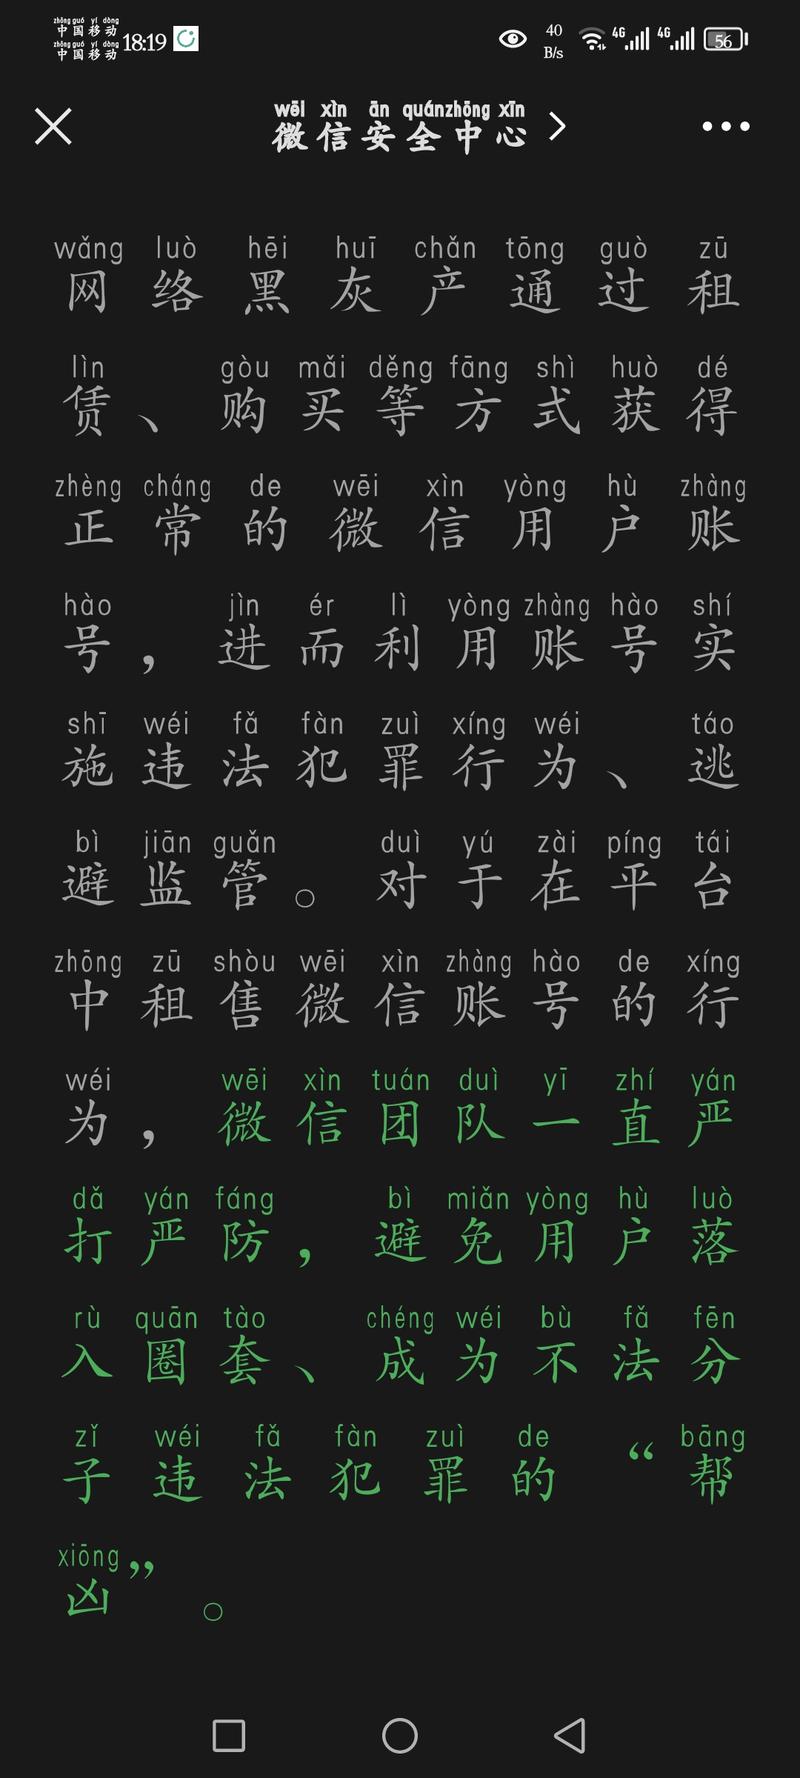 zhōng guó yí dòng
中国移动
zhōng guó yí dòng
中国移动 18:19 40 B/s 4G 4G 56
wēi xìn ān quán zhōng xīn
微信安全中心
wǎng luò hēi huī chǎn tōng guò zū
网络黑灰产通过租
lìn gòu mǎi děng fāng shì huò dé
赁、购买等方式获得
zhèng cháng de wēi xìn yòng hù zhàng
正常的微信用户账
hào jìn ér lì yòng zhàng hào shí
号，进而利用账号实
shī wéi fǎ fàn zuì xíng wéi táo
施违法犯罪行为、逃
bì jiān guǎn duì yú zài píng tái
避监管。对于在平台
zhōng zū shòu wēi xìn zhàng hào de xíng
中租售微信账号的行
wéi wēi xìn tuán duì yī zhí yán
为，微信团队一直严
dǎ yán fáng bì miǎn yòng hù luò
打严防，避免用户落
rù quān tào chéng wéi bù fǎ fēn
入圈套、成为不法分
zǐ wéi fǎ fàn zuì de bāng
子违法犯罪的“帮
xiōng
凶”。